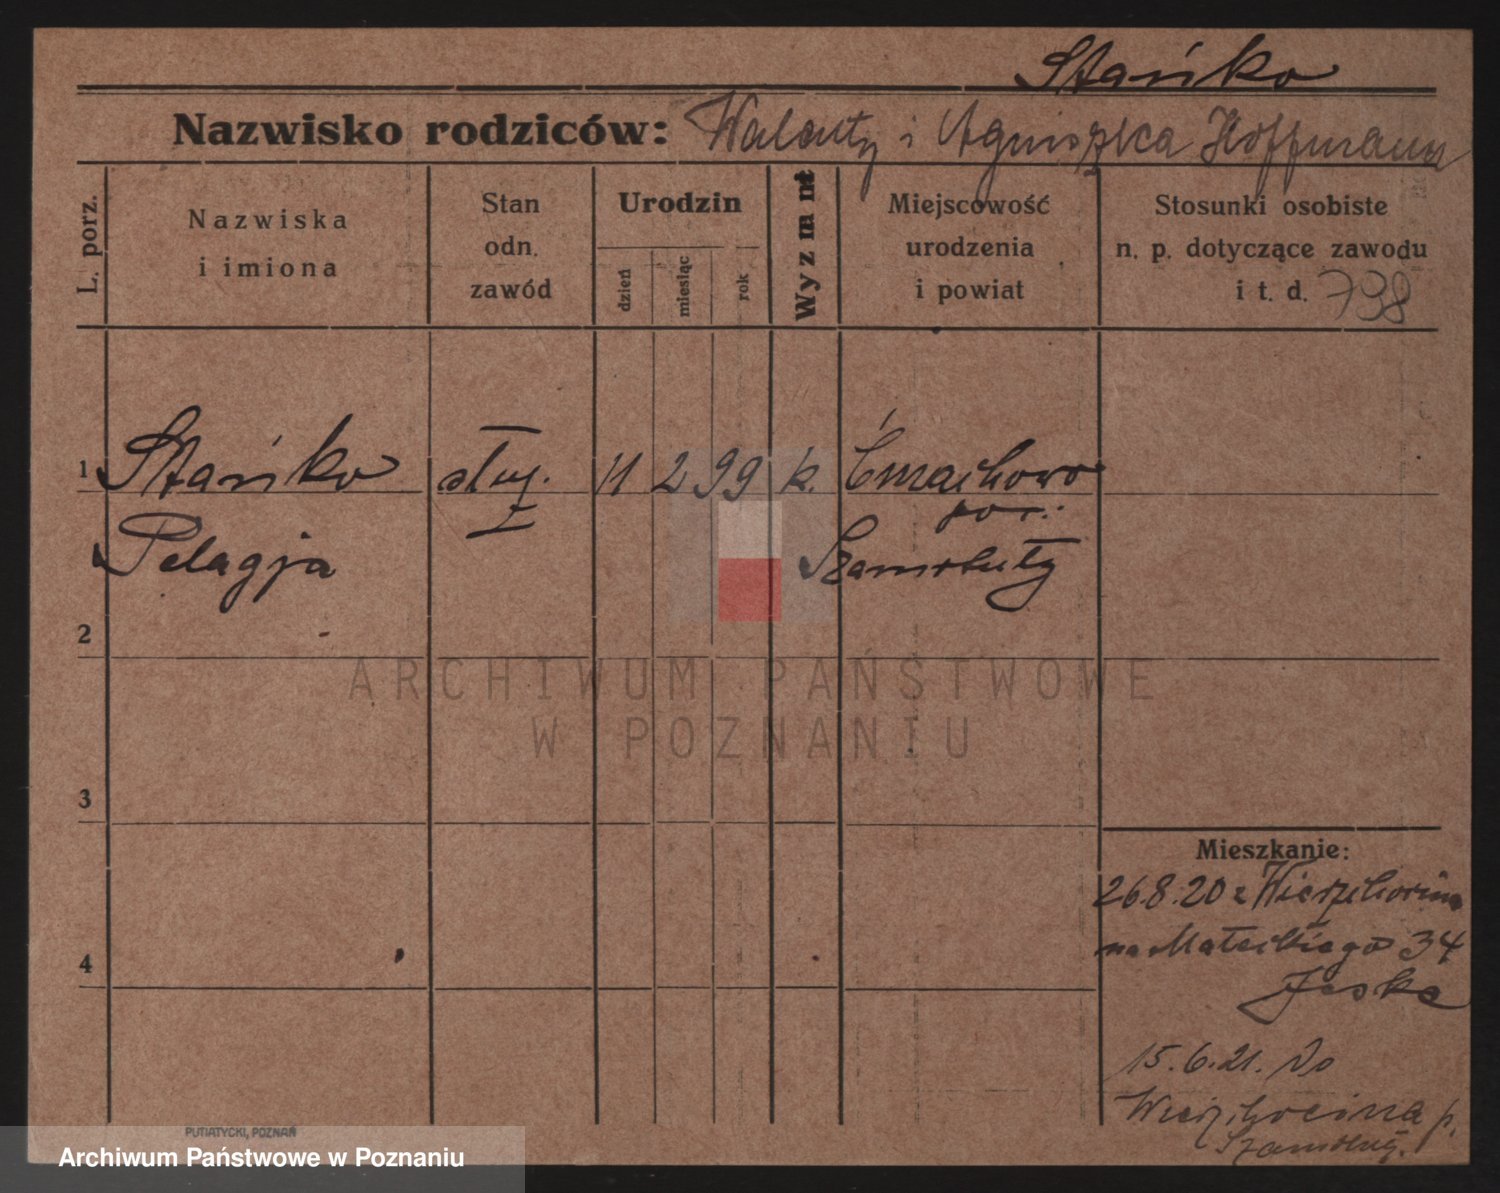 Stańko
Nazwisko rodziców: Walenty i Agnieszka Hoffmann
L. porz.
Nazwiska
i imiona
Stan
odn.
zawód
Urodzin
dzień
miesiąc
rok
Miejscowość
urodzenia
i powiat
Stosunki osobiste
n. p. dotyczące zawodu
i t. d. 738
1 Stańko służ. 11 2 99 k. Ćmachowo
pow.
Pelagja Szamotuły
2
3
4
Mieszkanie:
26.8.20 z Wierzchocina
na Małeckiego 34
Jeska
15.6.21. do
Wierzchocina p.
Szamotuły.
PUTIATYCKI, POZNAŃ
ARCHIWUM PAŃSTWOWE
W POZNANIU
Archiwum Państwowe w Poznaniu